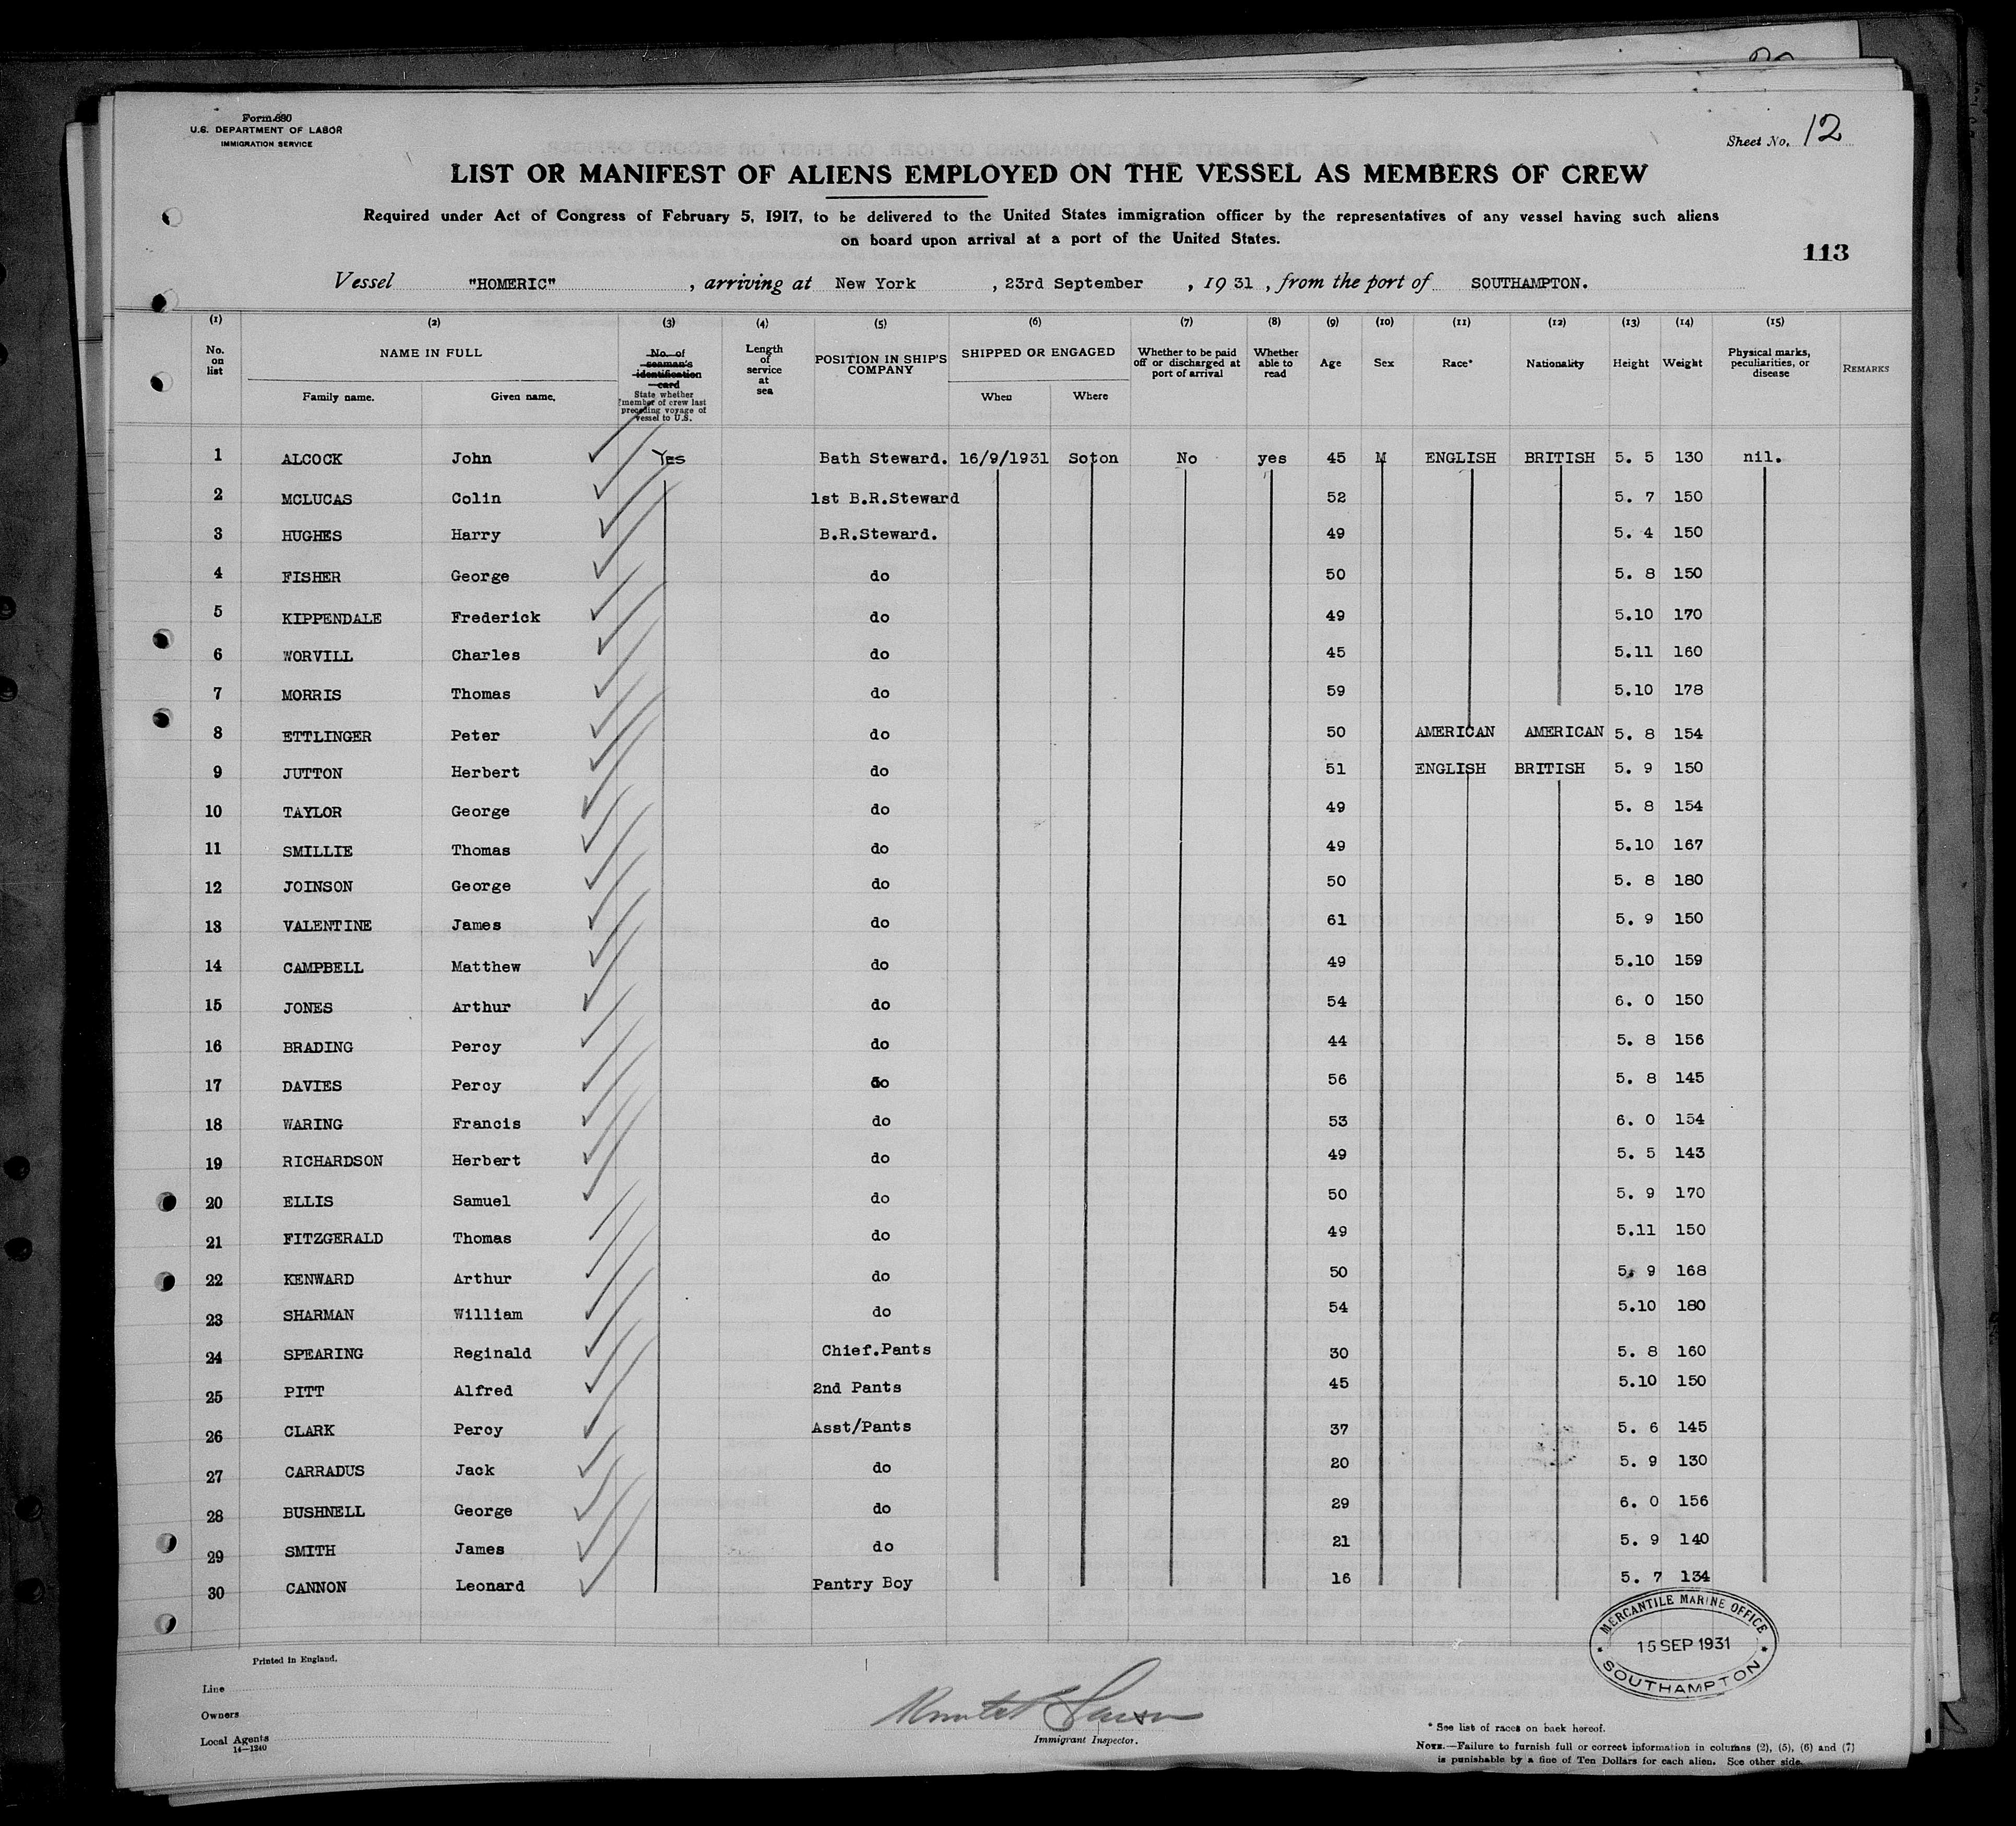 Form 680
U.S. DEPARTMENT OF LABOR
IMMIGRATION SERVICE
Sheet No. 12
LIST OR MANIFEST OF ALIENS EMPLOYED ON THE VESSEL AS MEMBERS OF CREW
Required under Act of Congress of February 5, 1917, to be delivered to the United States immigration officer by the representatives of any vessel having such aliens
on board upon arrival at a port of the United States.
113
Vessel "HOMERIC", arriving at New York, 23rd September, 1931, from the port of SOUTHAMPTON.
(1) (2) (3) (4) (5) (6) (7) (8) (9) (10) (11) (12) (13) (14) (15)
No. on list NAME IN FULL Family name. Given name. No. of seaman's identification card State whether member of crew last preceding voyage of vessel to U.S. Length of service at sea POSITION IN SHIP'S COMPANY SHIPPED OR ENGAGED When Where Whether to be paid off or discharged at port of arrival Whether able to read Age Sex Race* Nationality Height Weight Physical marks, peculiarities, or disease REMARKS
1 ALCOCK John Yes Bath Steward. 16/9/1931 Soton No yes 45 M ENGLISH BRITISH 5. 5 130 nil.
2 MCLUCAS Colin 1st B.R.Steward 52 5. 7 150
3 HUGHES Harry B.R.Steward. 49 5. 4 150
4 FISHER George do 50 5. 8 150
5 KIPPENDALE Frederick do 49 5.10 170
6 WORVILL Charles do 45 5.11 160
7 MORRIS Thomas do 59 5.10 178
8 ETTLINGER Peter do 50 AMERICAN AMERICAN 5. 8 154
9 JUTTON Herbert do 51 ENGLISH BRITISH 5. 9 150
10 TAYLOR George do 49 5. 8 154
11 SMILLIE Thomas do 49 5.10 167
12 JOINSON George do 50 5. 8 180
13 VALENTINE James do 61 5. 9 150
14 CAMPBELL Matthew do 49 5.10 159
15 JONES Arthur do 54 6. 0 150
16 BRADING Percy do 44 5. 8 156
17 DAVIES Percy do 56 5. 8 145
18 WARING Francis do 53 6. 0 154
19 RICHARDSON Herbert do 49 5. 5 143
20 ELLIS Samuel do 50 5. 9 170
21 FITZGERALD Thomas do 49 5.11 150
22 KENWARD Arthur do 50 5. 9 168
23 SHARMAN William do 54 5.10 180
24 SPEARING Reginald Chief.Pants 30 5. 8 160
25 PITT Alfred 2nd Pants 45 5.10 150
26 CLARK Percy Asst/Pants 37 5. 6 145
27 CARRADUS Jack do 20 5. 9 130
28 BUSHNELL George do 29 6. 0 156
29 SMITH James do 21 5. 9 140
30 CANNON Leonard Pantry Boy 16 5. 7 134
MERCANTILE MARINE OFFICE
15 SEP 1931
SOUTHAMPTON
Printed in England.
Line
Owners
Local Agents
14—1240
Immigrant Inspector.
* See list of races on back hereof.
NOTE.—Failure to furnish full or correct information in columns (2), (5), (6) and (7)
is punishable by a fine of Ten Dollars for each alien. See other side.